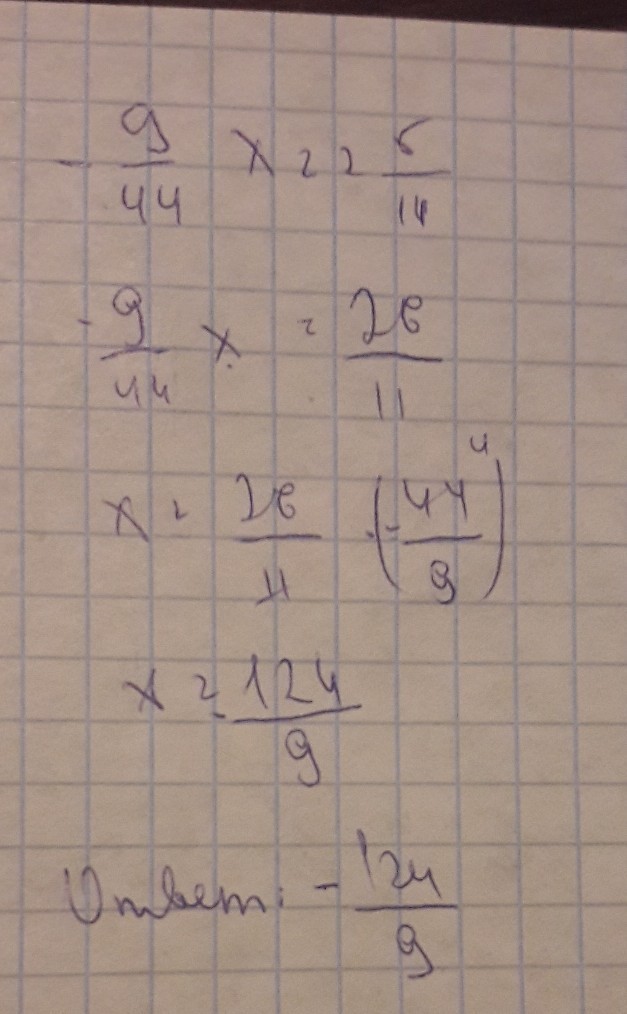 - 9/44 x = 2 6/11
- 9/44 x = 28/11
x = 28/11 · (- 44/9) 4
x = - 124/9
Ответ: - 124/9